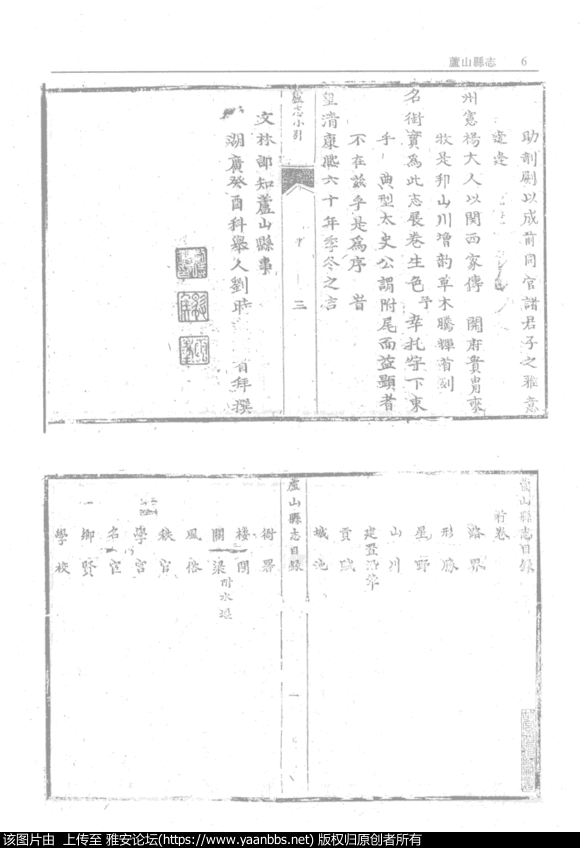 蘆山縣志 6
助剞劂以成前同官諸君子之雅意
州憲楊大人以関西家傳 開府貴胄來
牧是邦山川增韵草木騰輝首列
名銜實為此志展卷生色 予 幸托宇下東
乎 典型太史公謂附尾而益顯者
不在茲乎是爲序 旹
皇清康熙六十年季冬之吉
蘆志小引 三
文林郎知蘆山縣事
湖廣癸酉科舉人劉時 百拜撰
蘆山縣志目錄
首卷
形勝
星野
山川
建置沿革
貢賦
城池
蘆山縣志目錄 一
衙署
樓閣
關梁 附水堤
風俗
秩官
學宫
名宦
鄉賢
學校
该图片由 上传至 雅安论坛(https://www.yaanbbs.net) 版权归原创者所有